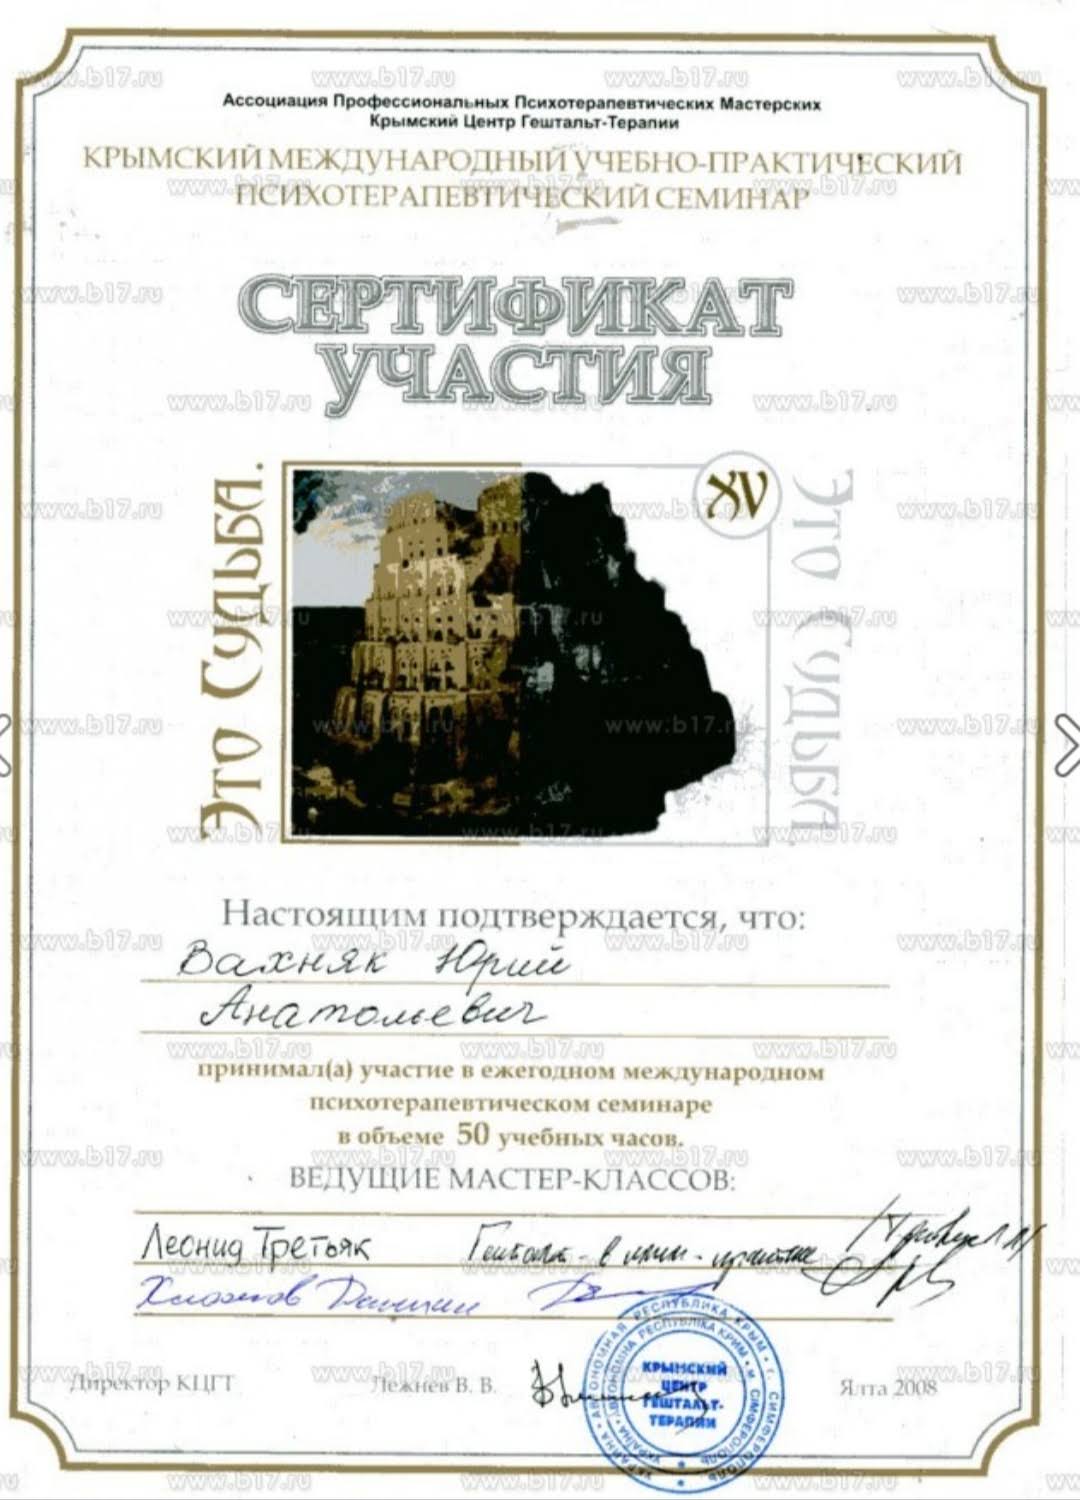 Ассоциация Профессиональных Психотерапевтических Мастерских
Крымский Центр Гештальт-Терапии
КРЫМСКИЙ МЕЖДУНАРОДНЫЙ УЧЕБНО-ПРАКТИЧЕСКИЙ
ПСИХОТЕРАПЕВТИЧЕСКИЙ СЕМИНАР
СЕРТИФИКАТ
УЧАСТИЯ
Это Судьба.
XV
Это Судьба
Настоящим подтверждается, что:
Вахняк Юрий
Анатольевич
принимал(а) участие в ежегодном международном
психотерапевтическом семинаре
в объеме 50 учебных часов.
ВЕДУЩИЕ МАСТЕР-КЛАССОВ:
Леонид Третьяк
Хломов Даниил
Директор КЦГТ Лежнев В. В. Ялта 2008
КРЫМСКИЙ
ЦЕНТР
ГЕШТАЛЬТ-
ТЕРАПИИ
www.b17.ru